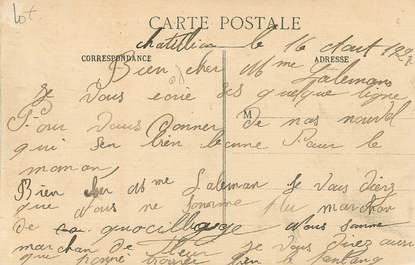 lot
CARTE POSTALE
CORRESPONDANCE ADRESSE
chatillion le 16 Aout 192
Bien cher Mme Laleman
Je vous ecrie ses quelque ligne
M
Pour vous donner de nos nouvel
qui sen bien bonne Pour le
moman
Bien cher Mme Laleman Je vous diez
que nous ne somme plu marchan
De quocillage nous somme
marchan de fleur je vous diez aussi
que